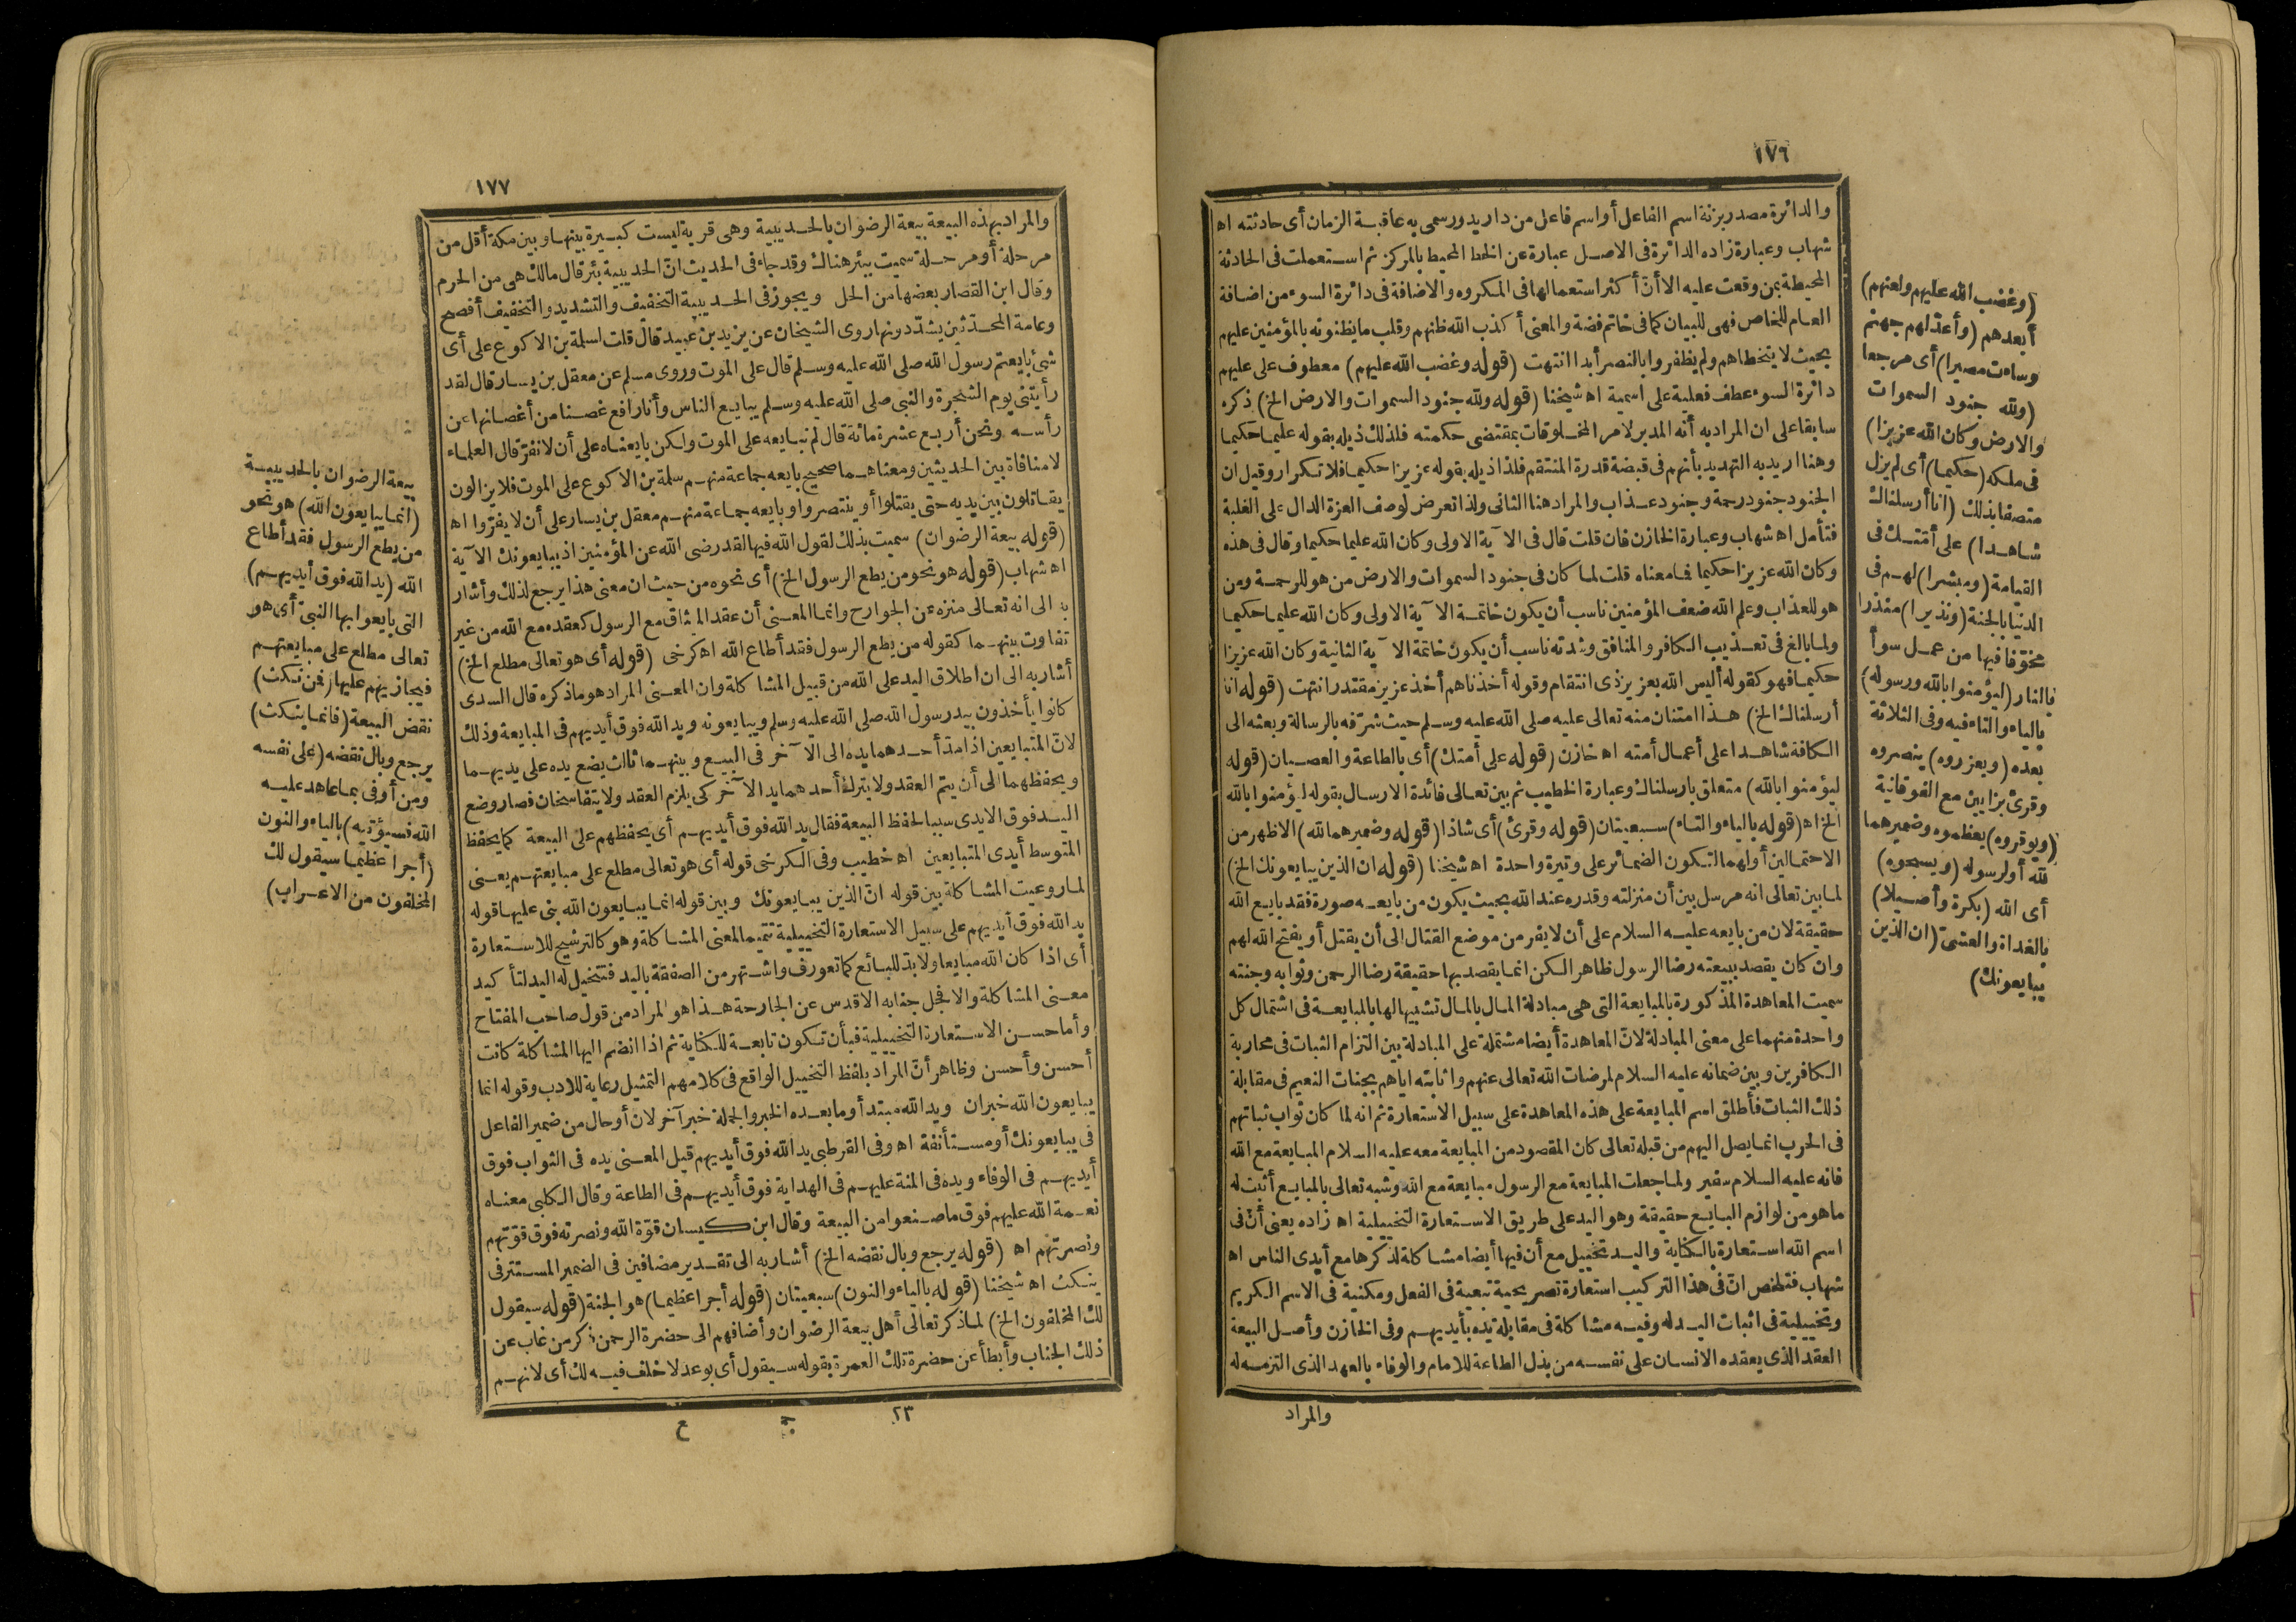 ١٧٦
والدائرة مصدر بزنة اسم الفاعل أو اسم فاعل من دار يدور سمى به عاقبة الزمان أى حادثته اه
شهاب وعبارة زاده الدائرة فى الاصل عبارة عن الخط المحيط بالمركز ثم استعملت فى الحادثة
المحيطة بمن وقعت عليه الا أنّ أكثر استعمالها فى المكروه والاضافة فى دائرة السوء من اضافة
العام للخاص فهى للبيان كما فى خاتم فضة والمعنى أكذب الله ظنهم وقلب ما يظنونه بالمؤمنين عليهم
بحيث لا يتخطاهم ولم يظفروا بالنصر أبدا انتهت (قوله وغضب الله عليهم) معطوف على عليهم
دائرة السوء عطف فعلية على اسمية اه شيخنا (قوله ولله جنود السموات والارض الخ) ذكره
سابقا على ان المراد به أنه المدبر لامر المخلوقات بمقتضى حكمته فلذلك ذيله بقوله عليما حكيما
وهنا اريد به التهديد بأنهم فى قبضة قدرة المنتقم فلذا ذيله بقوله عزيزا حكيما فلا تكرار وقيل ان
الجنود جنود رحمة وجنود عذاب والمراد هنا الثانى ولذا تعرض لوصف العزة الدال على الغلبة
فتأمل اه شهاب وعبارة الخازن فان قلت قال فى الآية الاولى وكان الله عليما حكيما وقال فى هذه
وكان الله عزيزا حكيما فما معناه قلت لما كان فى جنود السموات والارض من هو للرحمة ومن
هو للعذاب وعلم الله ضعف المؤمنين ناسب أن يكون خاتمة الآية الاولى وكان الله عليما حكيما
ولما بالغ فى تعذيب الكافر والمنافق وشدته ناسب أن يكون خاتمة الآية الثانية وكان الله عزيزا
حكيما فهو كقوله أليس الله بعزيز ذى انتقام وقوله أخذناهم أخذ عزيز مقتدر انتهت (قوله انا
أرسلناك الخ) هذا امتنان منه تعالى عليه صلى الله عليه وسلم حيث شرّفه بالرسالة وبعثه الى
الكافة شاهدا على أعمال أمته اه خازن (قوله على أمتك) أى بالطاعة والعصيان (قوله
ليؤمنوا بالله) متعلق بارسلناك وعبارة الخطيب ثم بين تعالى فائدة الارسال بقوله ليؤمنوا بالله
الخ اه (قوله بالياء والتاء) سبعيتان (قوله وقرئ) أى شاذا (قوله وضميرهما لله) الاظهر من
الاحتمالين أولهما لتكون الضمائر على وتيرة واحدة اه شيخنا (قوله ان الذين يبايعونك الخ)
لما بين تعالى انه مرسل بين أن منزلته وقدره عند الله بحيث يكون من بايعه صورة فقد بايع الله
حقيقة لان من بايعه عليه السلام على أن لا يفر من موضع القتال الى أن يقتل أو يفتح الله لهم
وان كان يقصد ببيعته رضا الرسول ظاهرا لكن انما يقصد بها حقيقة رضا الرحمن وثوابه وجنته
سميت المعاهدة المذكورة بالمبايعة التى هى مبادلة المال بالمال تشبيها لها بالمبايعة فى اشتمال كل
واحدة منهما على معنى المبادلة لانّ المعاهدة أيضا مشتملة على المبادلة بين التزام الثبات فى محاربة
الكافرين وبين ضمانه عليه السلام لمرضات الله تعالى عنهم واثابته اياهم بجنات النعيم فى مقابلة
ذلك الثبات فأطلق اسم المبايعة على هذه المعاهدة على سبيل الاستعارة ثم انه لما كان ثواب ثباتهم
فى الحرب انما يصل اليهم من قبله تعالى كان المقصود من المبايعة معه عليه السلام المبايعة مع الله
فانه عليه السلام سفير ولما جعلت المبايعة مع الرسول مبايعة مع الله وشبه تعالى بالمبايع أثبت له
ما هو من لوازم البايع حقيقة وهو اليد على طريق الاستعارة التخييلية اه زاده يعنى أنّ فى
اسم الله استعارة بالكناية واليد تخييل مع أن فيها أيضا مشاكلة لذكرها مع أيدى الناس اه
شهاب فتلخص انّ فى هذا التركيب استعارة تصريحية تبعية فى الفعل ومكنية فى الاسم الكريم
وتخييلية فى اثبات اليد له وفيه مشاكلة فى مقابلة يده بأيديهم وفى الخازن وأصل البيعة
العقد الذى يعقده الانسان على نفسه من بذل الطاعة للامام والوفاء بالعهد الذى التزمه له
والمراد
(وغضب الله عليهم ولعنهم)
أبعدهم (وأعدّ لهم جهنم
وساءت مصيرا) أى مرجعا
(ولله جنود السموات
والارض وكان الله عزيزا)
فى ملكه (حكيما) أى لم يزل
متصفا بذلك (انا أرسلناك
شاهدا) على أمّتك فى
القيامة (ومبشرا) لهم فى
الدنيا بالجنة (ونذيرا) منذرا
مخوّفا فيها من عمل سوأ
بالنار (ليؤمنوا بالله ورسوله)
بالياء والتاء فيه وفى الثلاثة
بعده (ويعزروه) ينصروه
وقرئ بزايين مع الفوقانية
(ويوقروه) يعظموه وضميرهما
لله أو لرسوله (ويسبحوه)
أى الله (بكرة وأصيلا)
بالغداة والعشىّ (ان الذين
يبايعونك)
١٧٧
والمراد بهذه البيعة بيعة الرضوان بالحديبية وهى قرية ليست كبيرة بينها وبين مكة أقل من
مرحلة أو مرحلة سميت ببئر هناك وقد جاء فى الحديث انّ الحديبية بئر قال مالك هى من الحرم
وقال ابن القصار بعضها من الحل ويجوز فى الحديبية التخفيف والتشديد والتخفيف أفصح
وعامة المحدّثين يشدّدونها روى الشيخان عن يزيد بن عبيد قال قلت لسلمة بن الاكوع على أى
شئ بايعتم رسول الله صلى الله عليه وسلم قال على الموت وروى مسلم عن معقل بن يسار قال لقد
رأيتنى يوم الشجرة والنبى صلى الله عليه وسلم يبايع الناس وأنا رافع غصنا من أغصانها عن
رأسه ونحن أربع عشرة مائة قال لم نبايعه على الموت ولكن بايعناه على أن لا نفرّ قال العلماء
لا منافاة بين الحديثين ومعناهما صحيح بايعه جماعة منهم سلمة بن الاكوع على الموت فلا يزالون
يقاتلون بين يديه حتى يقتلوا أو ينتصروا وبايعه جماعة منهم معقل بن يسار على أن لا يفرّوا اه
(قوله بيعة الرضوان) سميت بذلك لقول الله فيها لقد رضى الله عن المؤمنين اذ يبايعونك الآية
اه شهاب (قوله هو نحو من يطع الرسول الخ) أى نحوه من حيث ان معنى هذا يرجع لذلك وأشار
به الى انه تعالى منزه عن الجوارح وانما المعنى أن عقد الميثاق مع الرسول كعقده مع الله من غير
تفاوت بينهما كقوله من يطع الرسول فقد أطاع الله اه كرخى (قوله أى هو تعالى مطلع الخ)
أشار به الى ان اطلاق اليد على الله من قبيل المشاكلة وان المعنى المراد هو ما ذكره قال السدى
كانوا يأخذون بيد رسول الله صلى الله عليه وسلم ويبايعونه ويد الله فوق أيديهم فى المبايعة وذلك
لانّ المتبايعين اذا مدّ أحدهما يده الى الآخر فى البيع وبينهما ثالث يضع يده على يديهما
ويحفظهما الى أن يتم العقد ولا يترك أحدهما يد الآخر كى يلزم العقد ولا يتفاسخان فصار وضع
اليد فوق الايدى سببا لحفظ البيعة فقال يد الله فوق أيديهم أى يحفظهم على البيعة كما يحفظ
المتوسط أيدى المتبايعين اه خطيب وفى الكرخى قوله أى هو تعالى مطلع على مبايعتهم يعنى
لما روعيت المشاكلة بين قوله انّ الذين يبايعونك وبين قوله انما يبايعون الله بنى عليها قوله
يد الله فوق أيديهم على سبيل الاستعارة التخييلية تتميما لمعنى المشاكلة وهو كالترشيح للاستعارة
أى اذا كان الله مبايعا ولا بدّ للبائع كما تعورف واشتهر من الصفقة باليد فتتخيل له اليد لتأكيد
معنى المشاكلة والا فجل جنابه الاقدس عن الجارحة هذا هو المراد من قول صاحب المفتاح
وأما حسن الاستعارة التخييلية فبأن تكون تابعة للكناية ثم اذا انضم اليها المشاكلة كانت
أحسن وأحسن وظاهر أنّ المراد بلفظ التخييل الواقع فى كلامهم التمثيل رعاية للادب وقوله انما
يبايعون الله خبر ان ويد الله مبتدأ وما بعده الخبر والجملة خبر آخر لان أو حال من ضمير الفاعل
فى يبايعونك أو مستأنفة اه وفى القرطبى يد الله فوق أيديهم قيل المعنى يده فى الثواب فوق
أيديهم فى الوفاء ويده فى المنة عليهم فى الهداية فوق أيديهم فى الطاعة وقال الكلبى معناه
نعمة الله عليهم فوق ما صنعوا من البيعة وقال ابن كيسان قوّة الله ونصرته فوق قوّتهم
ونصرتهم اه (قوله يرجع وبال نقضه الخ) أشار به الى تقدير مضافين فى الضمير المستتر فى
ينكث اه شيخنا (قوله بالياء والنون) سبعيتان (قوله أجرا عظيما) هو الجنة (قوله سيقول
لك المخلفون الخ) لما ذكر تعالى أهل بيعة الرضوان وأضافهم الى حضرة الرحمن ذكر من غاب عن
ذلك الجناب وأبطأ عن حضرة تلك العمرة بقوله سيقول أى بوعد لا خلف فيه لك أى لانهم
٢٣ ج ع
بيعة الرضوان بالحديبية
(انما يبايعون الله) هو نحو
من يطع الرسول فقد أطاع
الله (يد الله فوق أيديهم)
التى بايعوا بها النبىّ أى هو
تعالى مطلع على مبايعتهم
فيجازيهم عليها (فمن نكث)
نقض البيعة (فانما ينكث)
يرجع وبال نقضه (على نفسه
ومن أوفى بما عاهد عليه
الله فسيؤتيه) بالياء والنون
(أجرا عظيما سيقول لك
المخلفون من الاعراب)